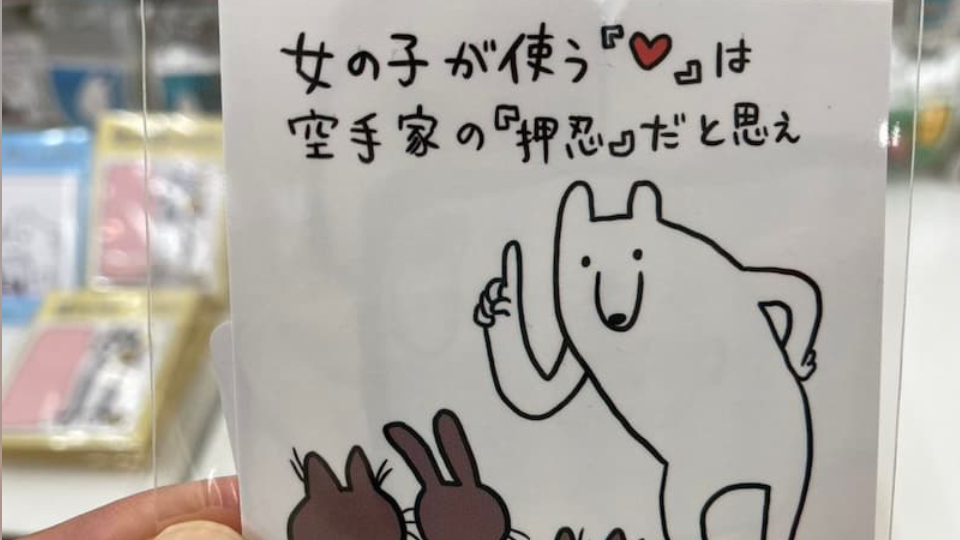 女の子が使う『♥』は
空手家の『押忍』だと思え